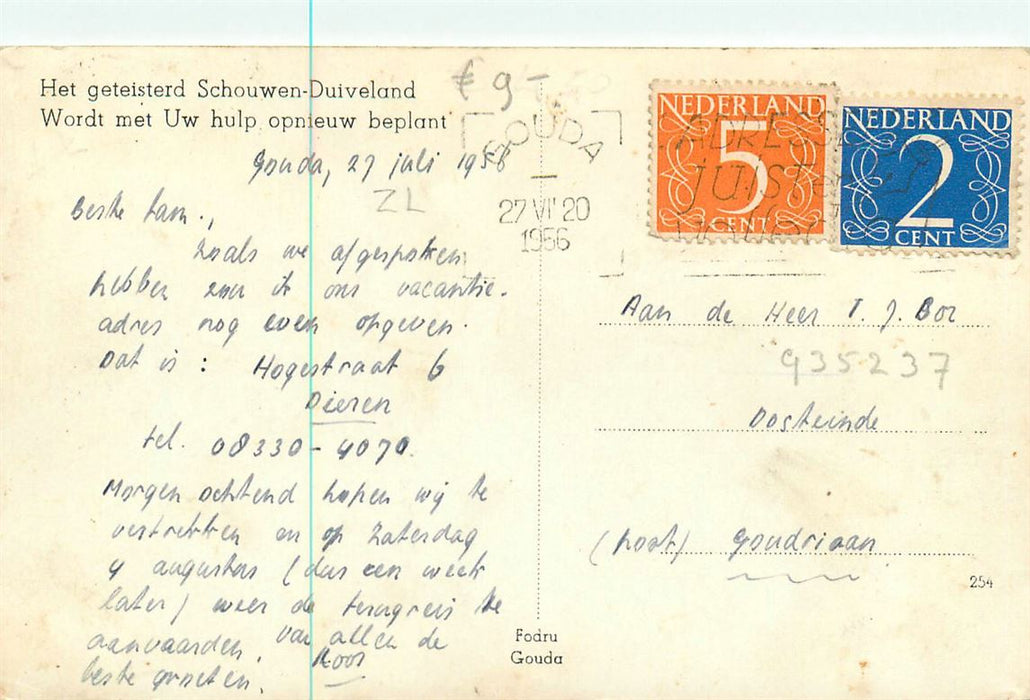 Het geteisterd Schouwen-Duiveland
Wordt met Uw hulp opnieuw beplant
€ 9-
Gouda, 27 juli 1956
ZL
Beste fam.,
Zoals we afgesproken
hebben zou ik ons vacantie-
adres nog even opgeven.
Dat is : Hogestraat 6
Dieren
tel. 08330-4070.
Morgen ochtend hopen wij te
vertrekken en op Zaterdag
4 augustus (dus een week
later) weer de terugreis te
aanvaarden. van allen de
beste groeten. Koos
GOUDA
27 VII 20
1956
NEDERLAND
5
CENT
NEDERLAND
2
CENT
ADRESSEER
JUIST
Aan de Heer T. J. Bor
935237
Oosteinde
(post) Goudriaan
254
Fodru
Gouda